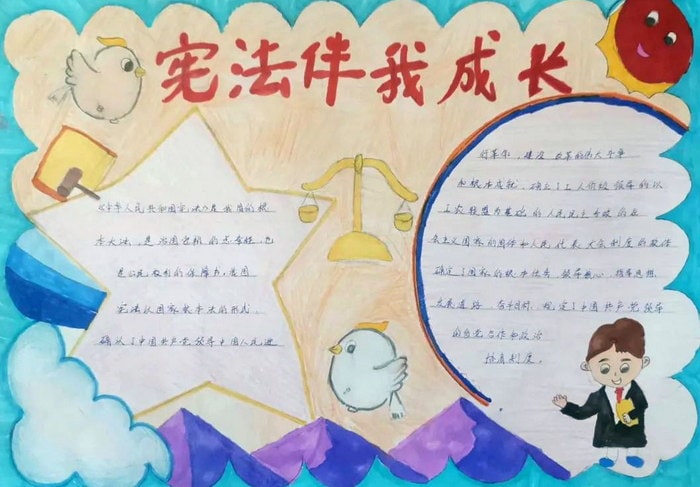 宪法伴我成长
《中华人民共和国宪法》是我国的根
本大法,是治国安邦的总章程,也
是公民权利的保障书,我国
宪法以国家根本法的形式,
确认了中国共产党领导中国人民进
行革命、建设、改革的伟大斗争
和根本成就,确立了工人阶级领导的以
工农联盟为基础的人民民主专政的
社会主义国家的国体和人民代表大会制度的政体
确定了国家的根本任务、领导核心、指导思想、
发展道路、
规定了中国共产党领导
的
合作和政治
协商制度。